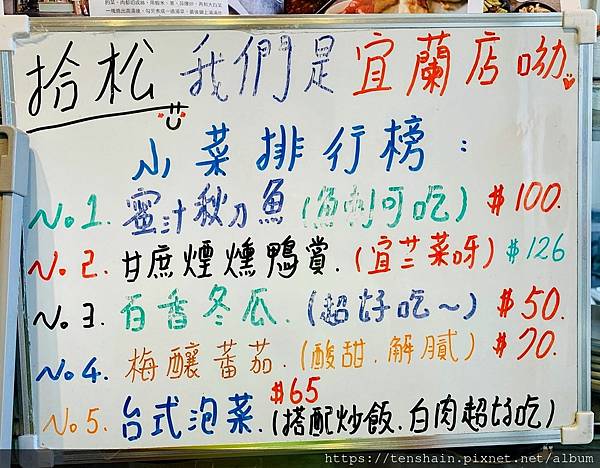 拾松 我們是宜蘭店呦
小菜排行榜：
No1. 蜜汁秋刀魚(魚刺可吃) $100.
No.2. 甘庶煙燻鴨賞.(宜兰菜呀) $126
No.3. 百香冬瓜.(超好吃~) $50.
No4. 梅釀蕃茄.(酸甜.解膩) $70.
No5. 台式泡菜.(搭配炒飯.白肉超好吃) $65
https://tenshain.pixnet.net/album